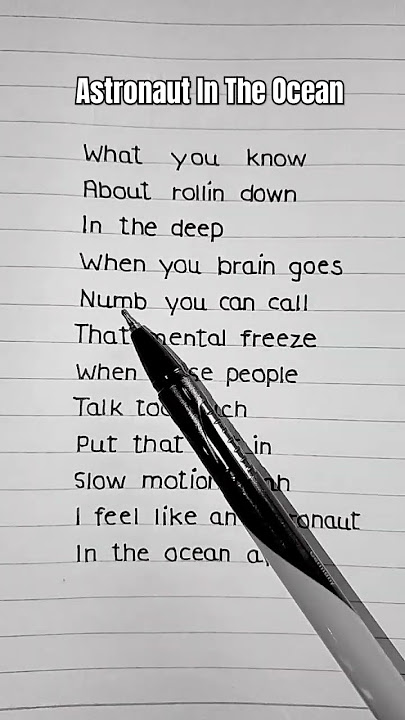 Astronaut In The Ocean
What you know
About rollin down
In the deep
When you brain goes
Numb you can call
That mental freeze
When people
Talk too
Put that in
Slow motion
I feel like an
In the ocean